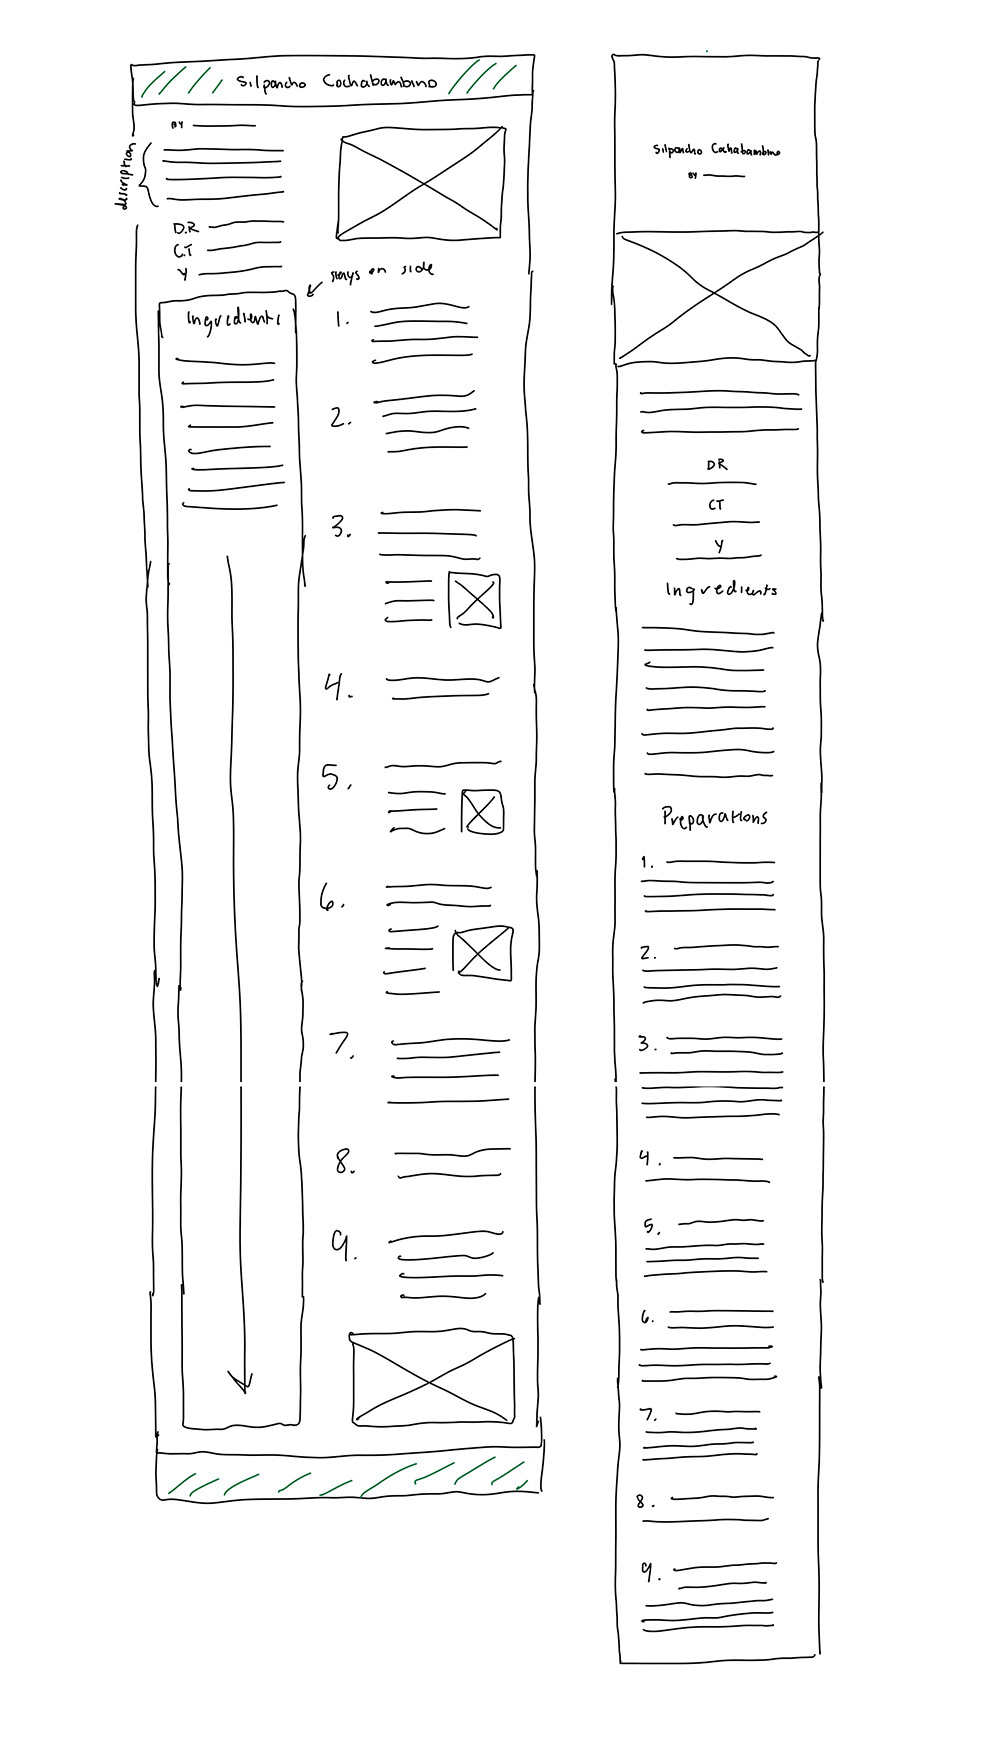 Silpancho Cochabambino
BY
description
D.R
C.T
Y
stays on side
Ingredients
1.
2.
3.
4.
5.
6.
7.
8.
9.
Silpancho Cochabambino
BY
DR
CT
Y
Ingredients
Preparations
1.
2.
3.
4.
5.
6.
7.
8.
9.